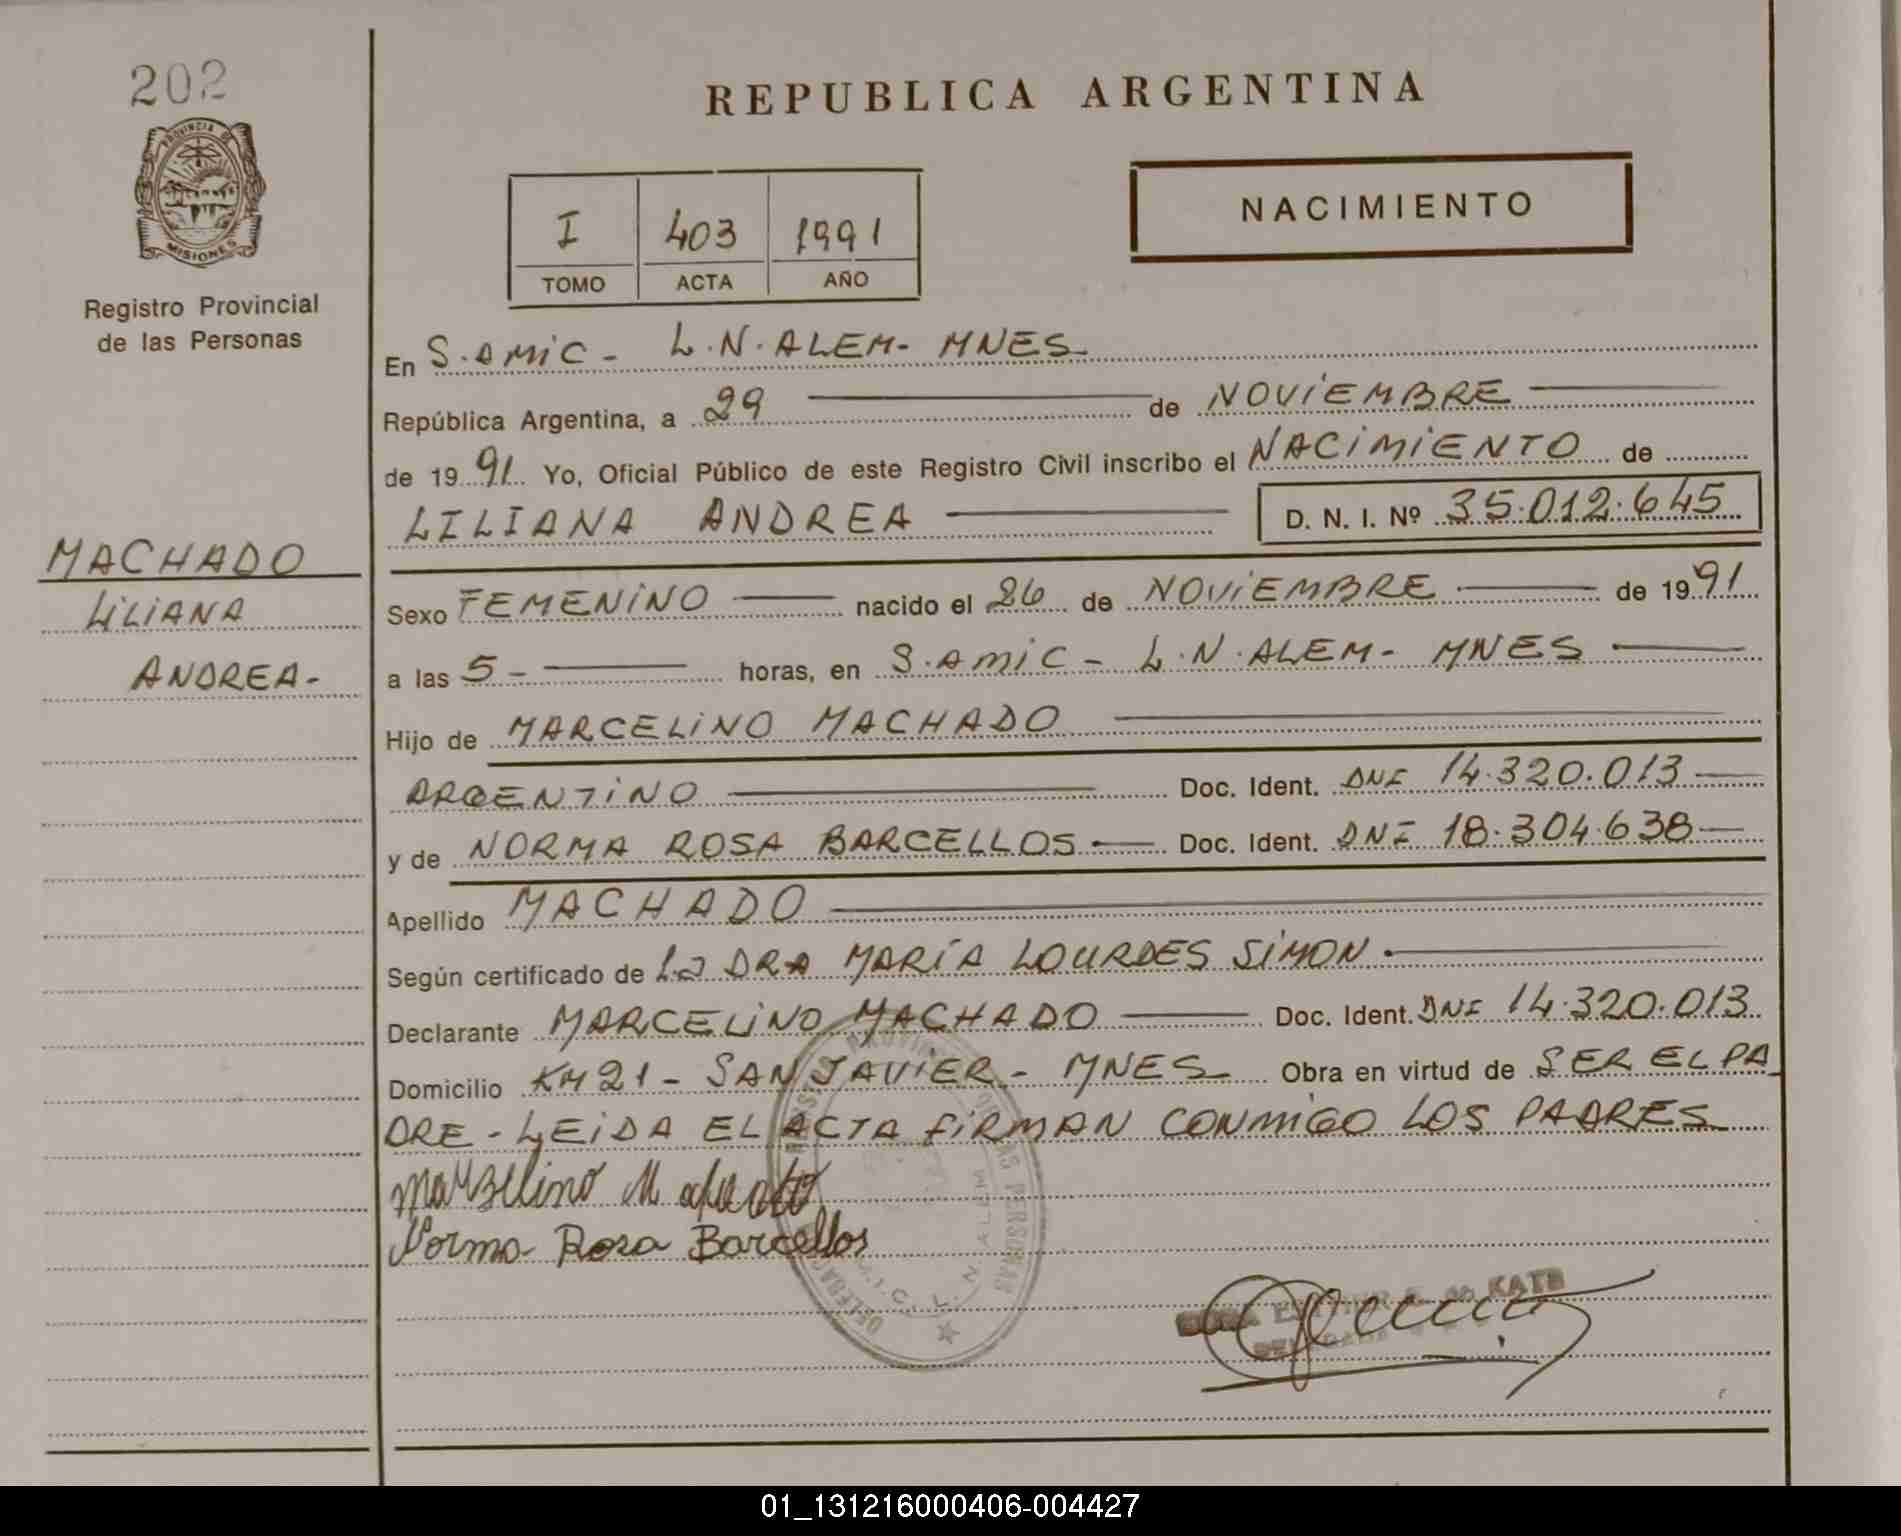 202
PROVINCIA DE
MISIONES
Registro Provincial
de las Personas
MACHADO
LILIANA
ANDREA-
REPUBLICA ARGENTINA
NACIMIENTO
I 403 1991
TOMO ACTA AÑO
En S.AMIC - L.N.ALEM- MNES
República Argentina, a 29 de NOVIEMBRE
de 1991 Yo, Oficial Público de este Registro Civil inscribo el NACIMIENTO de
LILIANA ANDREA D. N. I. Nº 35.012.645
Sexo FEMENINO nacido el 26 de NOVIEMBRE de 1991
a las 5 - horas, en S.AMIC - L.N.ALEM- MNES
Hijo de MARCELINO MACHADO
ARGENTINO Doc. Ident. DNI 14.320.013
y de NORMA ROSA BARCELLOS Doc. Ident. DNI 18.304.638
Apellido MACHADO
Según certificado de La DRA MARÍA LOURDES SIMON
Declarante MARCELINO MACHADO Doc. Ident. DNI 14.320.013
Domicilio KM 21 - SAN JAVIER - MNES Obra en virtud de SER EL PA
DRE - LEIDA EL ACTA FIRMAN CONMIGO LOS PADRES
Marselino
Norma Rosa Barcellos
DE LAS PERSONAS
L.N. ALEM
KATZ
01_131216000406-004427